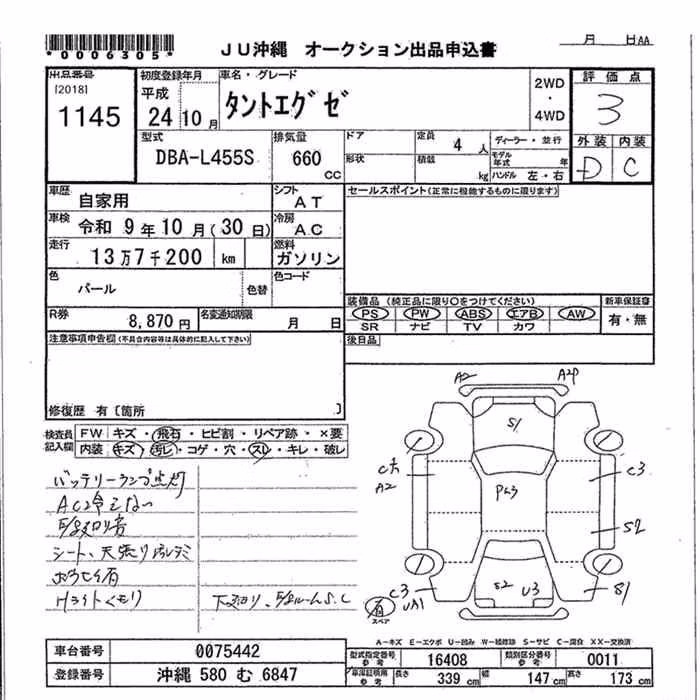 *0006305*
JU沖縄 オークション出品申込書
月 日AA
出品番号
[2018]
1145
初度登録年月
平成
24 10 月
車名・グレード
タントエグゼ
2WD
・
4WD
評価点
3
外装 内装
D C
型式
DBA-L455S
排気量
660
CC
ドア
形状
定員
4 人
積載
kg
ディーラー・並行
モデル年式 年
ハンドル 左・右
車歴
自家用
シフト
AT
セールスポイント(正常に稼働するものに限ります)
車検
令和 9 年 10 月( 30 日)
冷房
A.C
走行
13万7千200 km
燃料
ガソリン
色
パール
色替
色コード
R券
8,870 円
名変通知期限
月 日
装備品 (純正品に限り○をつけてください)
PS PW ABS エアB AW
SR ナビ TV カワ
新車保証書
有・無
後日品
注意事項申告欄(不具合内容等は具体的に記入して下さい)
修復歴 有〔箇所 〕
検査員記入欄
FW キズ・飛石・ヒビ割・リペア跡・×要
内装 キズ・汚レ・コゲ・穴・スレ・キレ・破レ
バッテリーランプ点灯
AC冷えない
Hライトくもり
A2
S1
C3
A2
P63
S2
C3
UA1
S2
U3
S1
有
スペア
A−キズ E−エクボ U−凹み W−補修跡 S−サビ C−腐食 XX−交換済
車台番号
0075442
登録番号
沖縄 580 む 6847
型式指定番号
参考
16408
類別区分番号
参考
0011
車庫証明用
参考
長さ
339 cm
幅
147 cm
高さ
173 cm